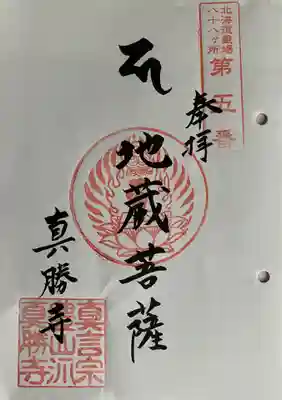 北海道霊場
八十八ヶ所
第五番
奉拝
地蔵菩薩
真勝寺
真言宗
真勝寺